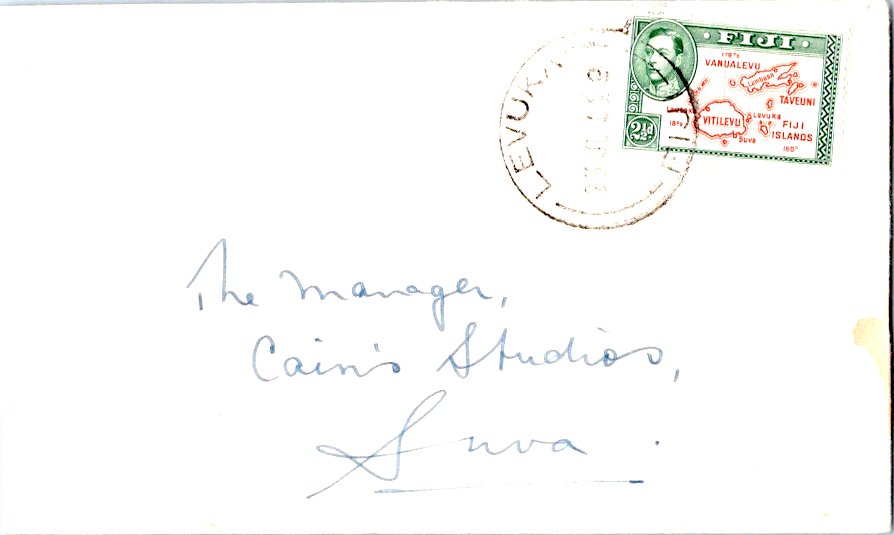 FIJI
178°E
VANUALEVU
Lambasa
TAVEUNI
18°S
VITILEVU
LEVUKA
FIJI
ISLANDS
Suva
180°
2½d
LEVUKA
FIJI
The Manager,
Cain's Studios,
Suva.